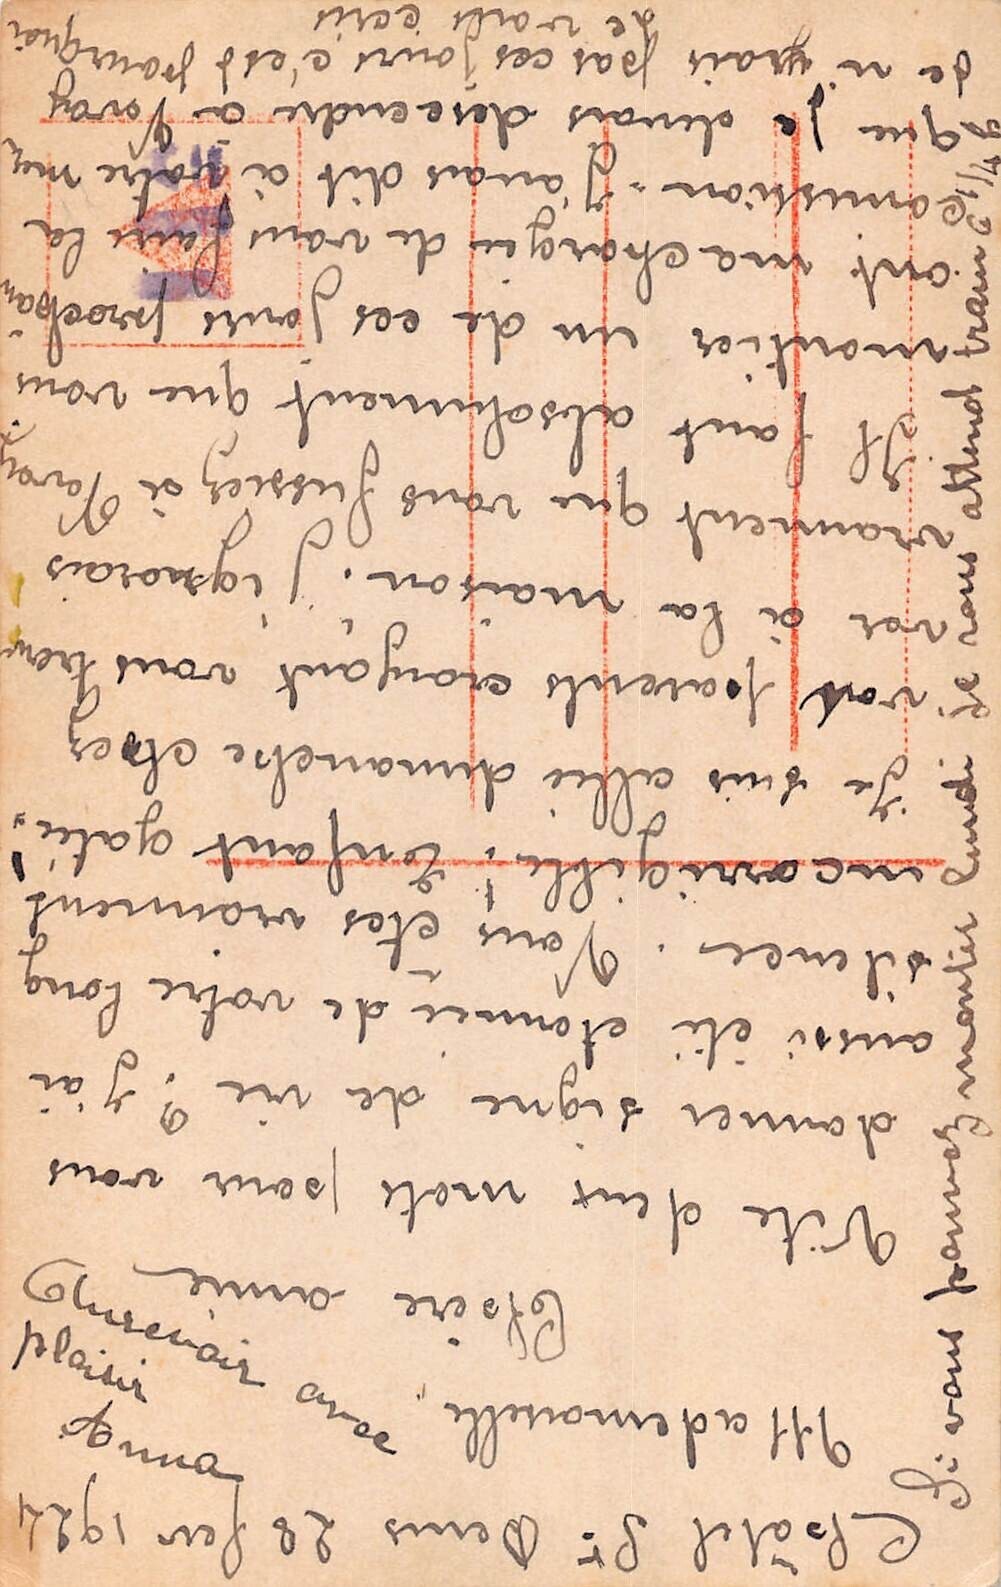 Châtel St Denis 28 fev 1924
Mademoiselle,
Chère amie
Vite deux mots pour vous
donner signe de vie? J'ai
aussi été étonnée de votre long
silence. Vous êtes vraiment
incorrigible! Enfant gatée!
Je suis allée dimanche chez
vos parents croyant vous trou-
ver à la maison. J'ignorais
vraiment que vous fussiez à Varay
Il faut absolument que vous
montiez un de ces jours prochain
ont ma chargée de vous faire la
comission. J'avais dit à votre
que je devais descendre à Varay
je n'irais pas ces jours c'est pourquoi
je vous écris
Si vous pouvez monter lundi je vous attend train
Au revoir avec
plaisir
Anna